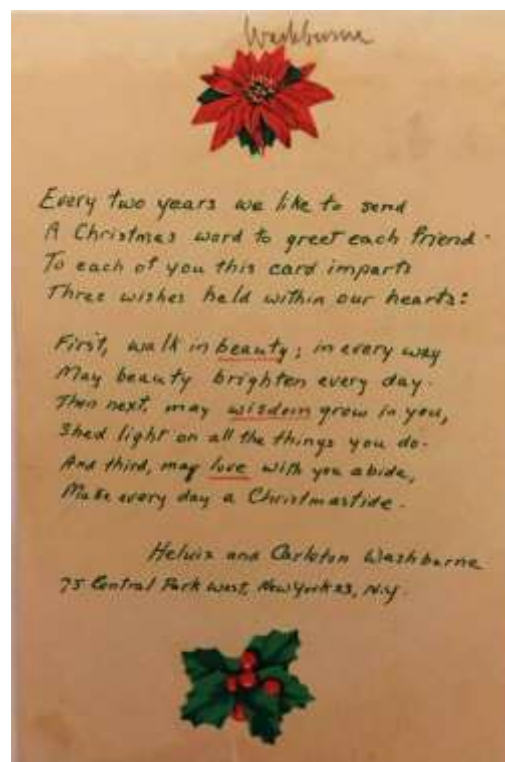 Washburne
Every two years we like to send
A Christmas word to greet each friend.
To each of you this card imparts
Three wishes held within our hearts:
First, walk in beauty; in every way
May beauty brighten every day.
Then next, may wisdom grow in you,
Shed light on all the things you do.
And third, may love with you abide,
Make every day a Christmastide.
Heluiz and Carleton Washburne
75 Central Park West, New York 23, N.Y.